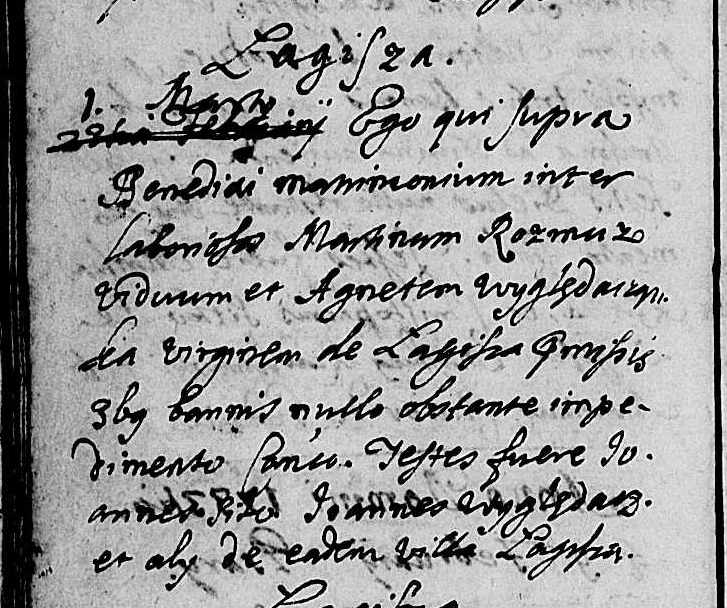 Łagisza.
1. Martij Ego qui supra
Benedixi matrimonium inter
laboriosos Martinum Rozmuz
Viduum et Agnetem Wyględaczyn
ka Virginem de Łagisza praemissis
3bq bannis nullo obstante impe-
dimento Canico. Testes fuere Jo-
annes Joannes Wyględacz.
et alij de eadem villa Łagisza.
Łagisza